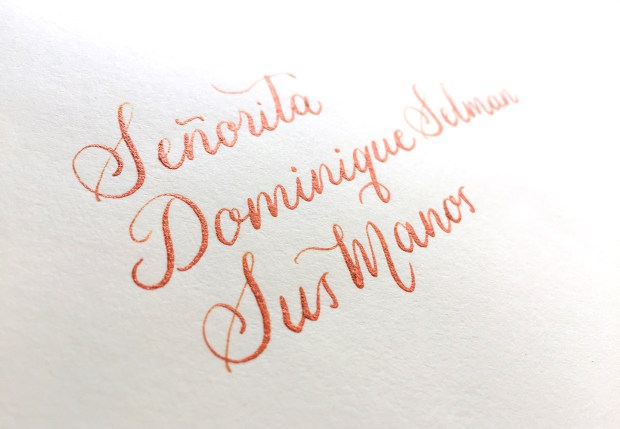 Señorita
Dominique Selman
Sus Manos